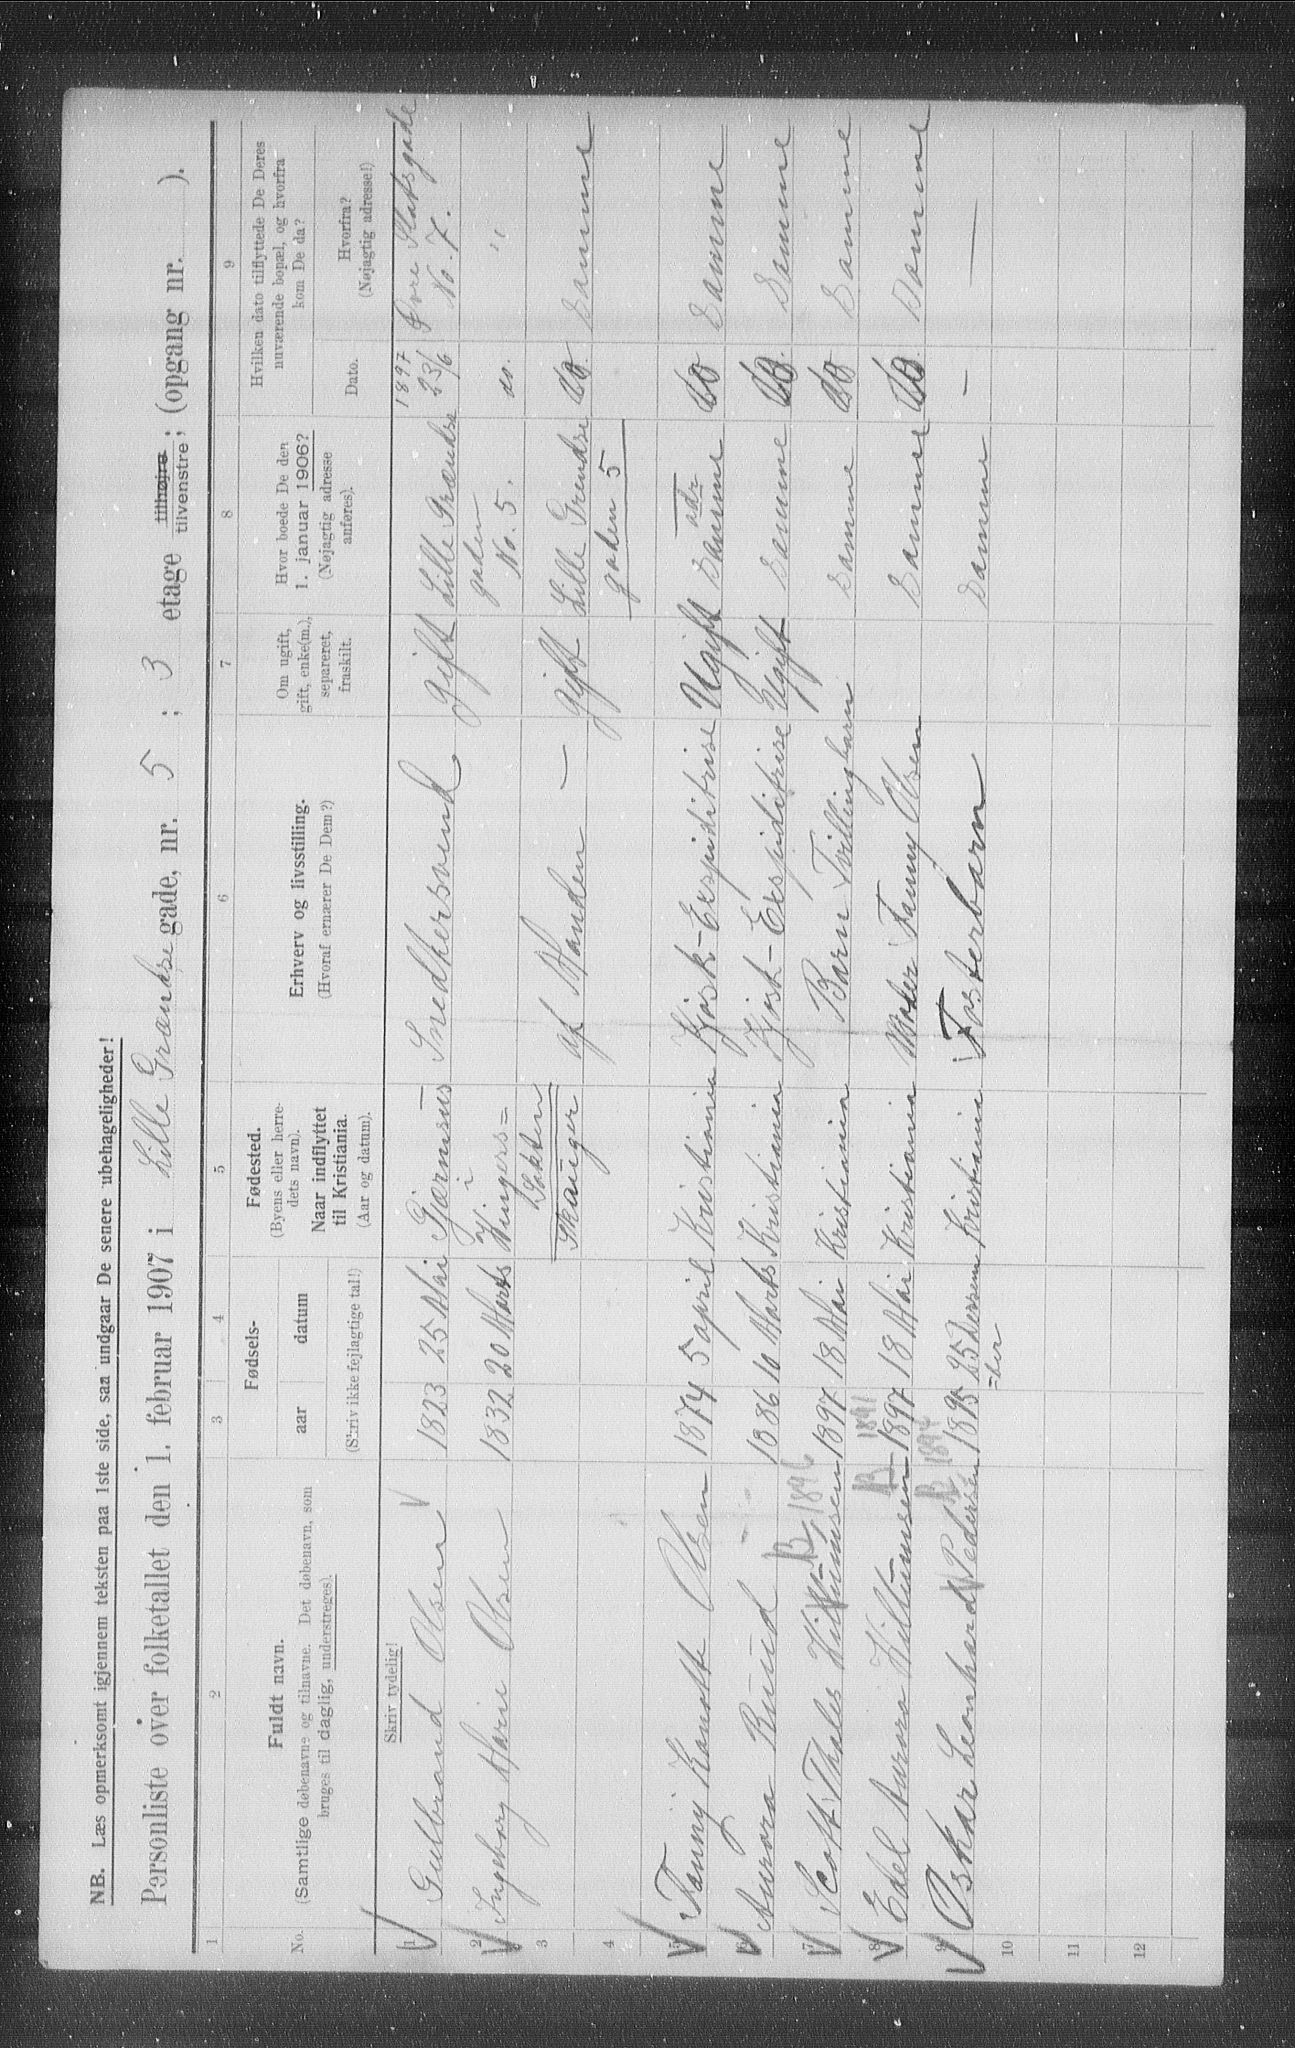 NB. Læs opmerksomt igjennem teksten paa 1ste side, saa undgaar De senere ubehageligheder!
Personliste over folketallet den 1. februar 1907 i Lille Grændse gade, nr. 5 ; 3 etage tilhøjre tilvenstre ; (opgang nr. ).
1 2 3 4 5 6 7 8 9
No.
Fuldt navn.
(Samtlige døbenavne og tilnavne. Det døbenavn, som
bruges til daglig, understreges).
Fødsels-
aar datum
(Skriv ikke fejlagtige tal!)
Fødested.
(Byens eller herre-
dets navn).
Naar indflyttet
til Kristiania.
(Aar og datum).
Erhverv og livsstilling.
(Hvoraf ernærer De Dem?)
Om ugift,
gift, enke(m.),
separeret,
fraskilt.
Hvor boede De den
1. januar 1906?
(Nøjagtig adresse
anføres).
Hvilken dato tilflyttede De Deres
nuværende bopæl, og hvorfra
kom De da?
Dato.
Hvorfra?
(Nøjagtig adresse!)
Skriv tydelig!
1 Gulbrand Olsen 1823 25 Mai Snedkersvend gift Lille Grændse 1897 23/6 Øvre Slotsgade
gaden No. 7.
2 Ingeborg Marie Olsen 1832 20 Marts No. 5. do. "
3 af Manden — gift Lille Grendse do Samme
Skauger gaden 5
4
adr
5 Fanny Kanutte Olsen 1874 5 april Kristiania Kjosk-Ekspiditrise Ugift Samme do Samme
6 Aurora Ruud 1886 10 Marts Kristiania Kjosk-Ekspiditrise Ugift Samme do. Samme
1896
7 Scott Thales 1897 18 Mai Kristiania Barn Tvillingbarn Samme do Samme
B 1891
8 Edel Aurora 1897 18 Mai Kristiania Moder Fanny Olsen Samme do. Samme
B 1894
9 Oskar Leonhard Pedersen 1895 25 Dessem Kristiania Fosterbarn Samme — —
=ber
10
11
12